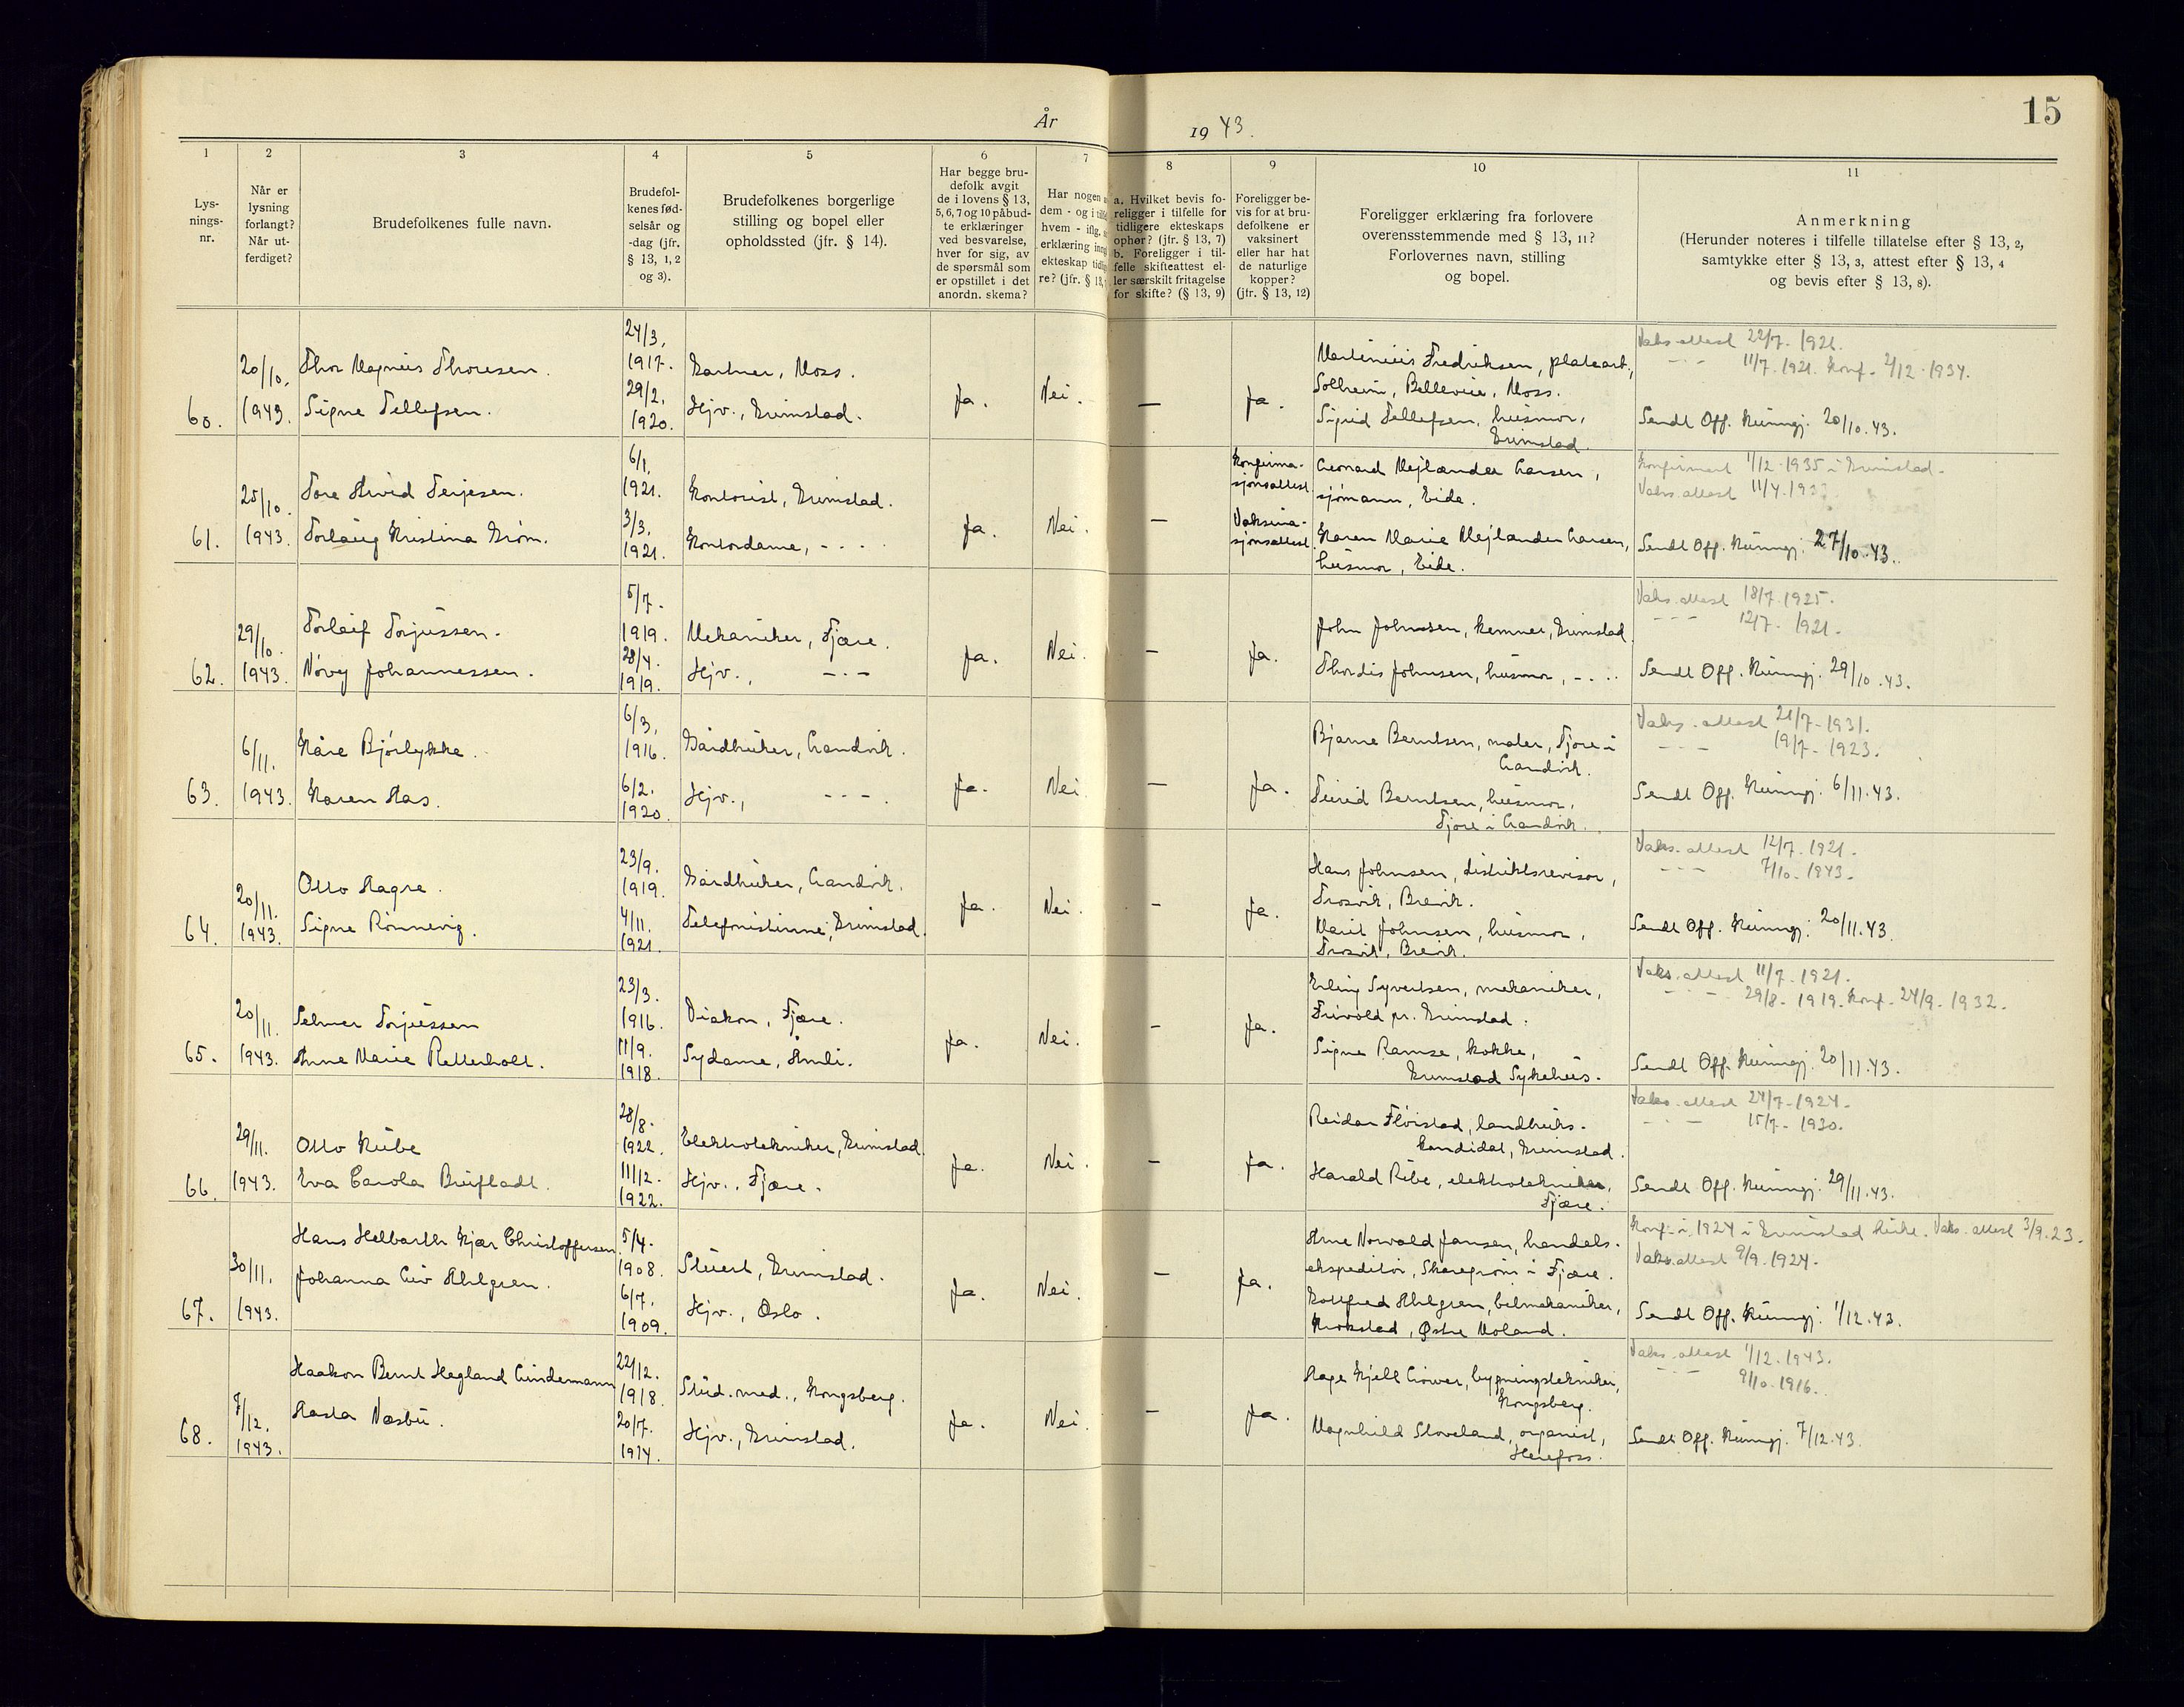 15
År 1943.
1 2 3 4 5 6 7 8 9 10 11
Lys-
nings-
nr.
Når er
lysning
forlangt?
Når ut-
ferdiget?
Brudefolkenes fulle navn.
Brudefol-
kenes fød-
selsår og
-dag (jfr.
§ 13, 1, 2
og 3).
Brudefolkenes borgerlige
stilling og bopel eller
opholdssted (jfr. § 14).
Har begge bru-
defolk avgit
de i lovens § 13,
5, 6, 7 og 10 påbud-
te erklæringer
ved besvarelse,
hver for sig, av
de spørsmål som
er opstillet i det
anordn. skema?
Har nogen
dem - og i
hvem - iflg.
erklæring
ekteskap
re? (jfr. § 13,
a. Hvilket bevis fo-
religger i tilfelle for
tidligere ekteskaps
ophør? (jfr. § 13, 7)
b. Foreligger i til-
felle skifteattest el-
ler særskilt fritagelse
for skifte? (§ 13, 9)
Foreligger be-
vis for at bru-
defolkene er
vaksinert
eller har hat
de naturlige
kopper?
(jfr. § 13, 12)
Foreligger erklæring fra forlovere
overensstemmende med § 13, 11?
Forlovernes navn, stilling
og bopel.
Anmerkning
(Herunder noteres i tilfelle tillatelse efter § 13, 2,
samtykke efter § 13, 3, attest efter § 13, 4
og bevis efter § 13, 8).
60.
20/10.
1943.
Thor Magnus Thoresen.
Signe Tellefsen.
24/3.
1917.
29/2.
1920.
Gartner, Moss.
Hjv., Grimstad.
Ja.
Nei.
—
Ja.
Martinius Fredriksen, platearb.,
Solheim, Bellevue, Moss.
Sigrid Tellefsen, husmor,
Grimstad.
Vaks.attest 22/7. 1921.
- - - 11/7. 1921. Konf. 2/12. 1934.
Sendt Off. Kunngj. 20/10.43.
61.
25/10.
1943.
Tore Arvid Terjesen.
Torlaug Kristina Grøm.
6/1.
1921.
3/3.
1921.
Kontorist, Grimstad.
Kontordame, - - - -
Ja.
Nei.
—
Konfirma-
sjonsattest.
Vaksina-
sjonsattest.
Leonard Mejlænder Larsen,
sjømann, Eide.
Karen Marie Mejlænder Larsen,
husmor, Eide.
Konfirmert 1/12. 1935 i Grimstad.
Vaks.attest 11/4.
Sendt Off. Kunngj. 27/10.43.
62.
29/10.
1943.
Torleif Torjussen.
Nóvy Johannessen.
5/7.
1919.
28/4.
1919.
Mekaniker, Fjære.
Hjv., - - -
Ja.
Nei.
—
Ja.
John Johnsen, kemner, Grimstad.
Thordis Johnsen, husmor, - - - -
Vaks.attest 18/7. 1925.
- - - 12/7. 1921.
Sendt Off. Kunngj. 29/10.43.
63.
6/11.
1943.
Kåre Bjørlykke.
Karen Aas.
6/3.
1916.
6/2.
1920.
Gårdbruker, Landvik.
Hjv., - - - -
Ja.
Nei
—
Ja.
Bjarne Berntsen, maler, Fjære i
Landvik.
Turid Berntsen, husmor,
Fjære i Landvik.
Vaks.attest 21/7. 1931.
- - - 19/7. 1923.
Sendt Off. Kunngj. 6/11.43.
64.
20/11.
1943.
Otto Aagre.
Signe Rønnevig.
23/9.
1919.
4/11.
1921.
Gårdbruker, Landvik.
Telefonistinne, Grimstad.
Ja.
Nei.
—
Ja.
Hans Johnsen, distriktsrevisor,
Trosvik, Brevik.
Marit Johnsen, husmor,
Trosvik, Brevik.
Vaks.attest 12/7. 1921.
- - - 7/10. 1943.
Sendt Off. Kunngj. 20/11.43.
65.
20/11.
1943.
Selmer Torjussen
Anne Marie Retterholt.
23/3.
1916.
11/9.
1918.
Diakon, Fjære.
Sydame, Åmli.
Ja.
Nei.
—
Ja.
Erling Syvertsen, mekaniker,
Frivold pr. Grimstad.
Signe Ramse, kokke,
Grimstad Sykehus.
Vaks.attest 11/7. 1921.
- - - 29/8. 1919. Konf. 24/9. 1932.
Sendt Off. Kunngj. 20/11.43.
66.
29/11.
1943.
Otto Ribe
Eva Carola Brufladt.
28/8.
1922.
11/12.
1922.
Elektrotekniker, Grimstad.
Hjv., Fjære.
Ja.
Nei.
—
Ja.
Reidar Fløistad, landbruks-
kandidat, Grimstad.
Harald Ribe, elektrotekniker,
Fjære.
Vaks.attest 24/7. 1924.
- - - 15/7. 1930.
Sendt Off. Kunngj. 29/11.43.
67.
30/11.
1943.
Hans Helbarth Kjær Christoffersen.
Johanna Liv Ahlgren.
5/4.
1908.
6/7.
1909.
Stuert, Grimstad.
Hjv., Oslo.
Ja.
Nei.
—
Ja.
Arne Norvald Jansen, handels-
ekspeditør, Skaregrøm i Fjære.
Gottfred Ahlgren, bilmekaniker,
Krokstad, Østre Moland.
Konf. i 1924 i Grimstad kirke. Vaks.attest 3/9.23.
Vaks.attest 9/9. 1924.
Sendt Off. Kunngj. 1/12.43.
68.
7/12.
1943.
Haakon Bernt Hegland Lindemann
Aasta Næsbu.
22/12.
1918.
20/7.
1914.
Stud. med., Kongsberg.
Hjv., Grimstad.
Ja.
Nei.
—
Ja.
Aage Kjell Löwer, bygningstekniker,
Kongsberg.
Magnhild Stoveland, organist,
Herefoss.
Vaks.attest 1/12. 1943.
- - - 9/10. 1916.
Sendt Off. Kunngj. 7/12.43.